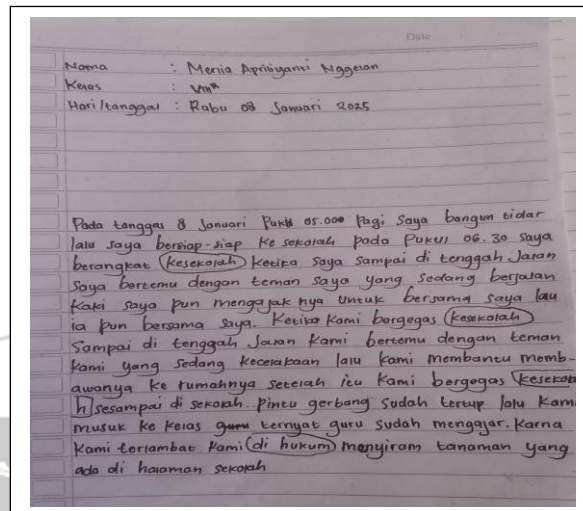 Date
Nama : Meria Apriliyanti Nggelan
Kelas : VIII A
Hari/tanggal : Rabu 08 Januari 2025
Pada tanggal 8 Januari Pukul 05.000 Pagi Saya bangun tidar
lalu saya bersiap-siap ke sekolah pada Pukul 06.30 saya
berangkat kesekolah ketika saya sampai di tenggah Jalan
Saya bertemu dengan teman saya yang sedang berjalan
kaki saya pun mengajak nya untuk bersama saya lau
ia pun bersama saya. Ketika kami bergegas kesekolah
Sampai di tenggah Jalan kami bertemu dengan teman
kami yang sedang kecelakaan lalu kami membantu memb-
awanya ke rumahnya setelah itu kami bergegas kesekola
h sesampai di sekolah. Pintu gerbang sudah tertup lalu kami
musuk ke kelas guru ternyat guru sudah mengajar. karna
kami terlambat kami di hukum menyiram tanaman yang
ada di halaman sekolah